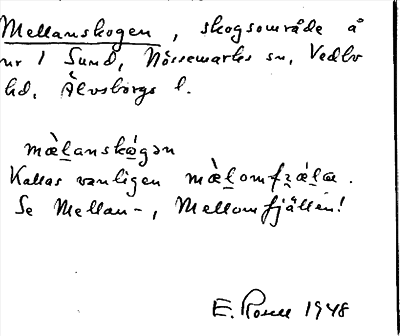 Mellanskogen, skogsområde å
nr 1 Sund, Nössemarks sn, Vedbo
hd, Älvsborgs l.
mæ̀lanskɷ́gən
Kallas vanligen mæ̀lomfʐǽlæ.
Se Mellan-, Mellomfjällen!
E. Rosell 1948